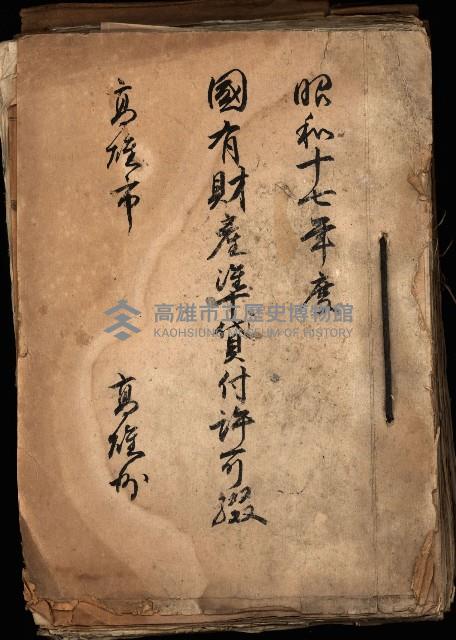 昭和十七年度
國有財產準貸付許可綴
高雄市
高雄州
高雄市立歷史博物館
KAOHSIUNG MUSEUM OF HISTORY